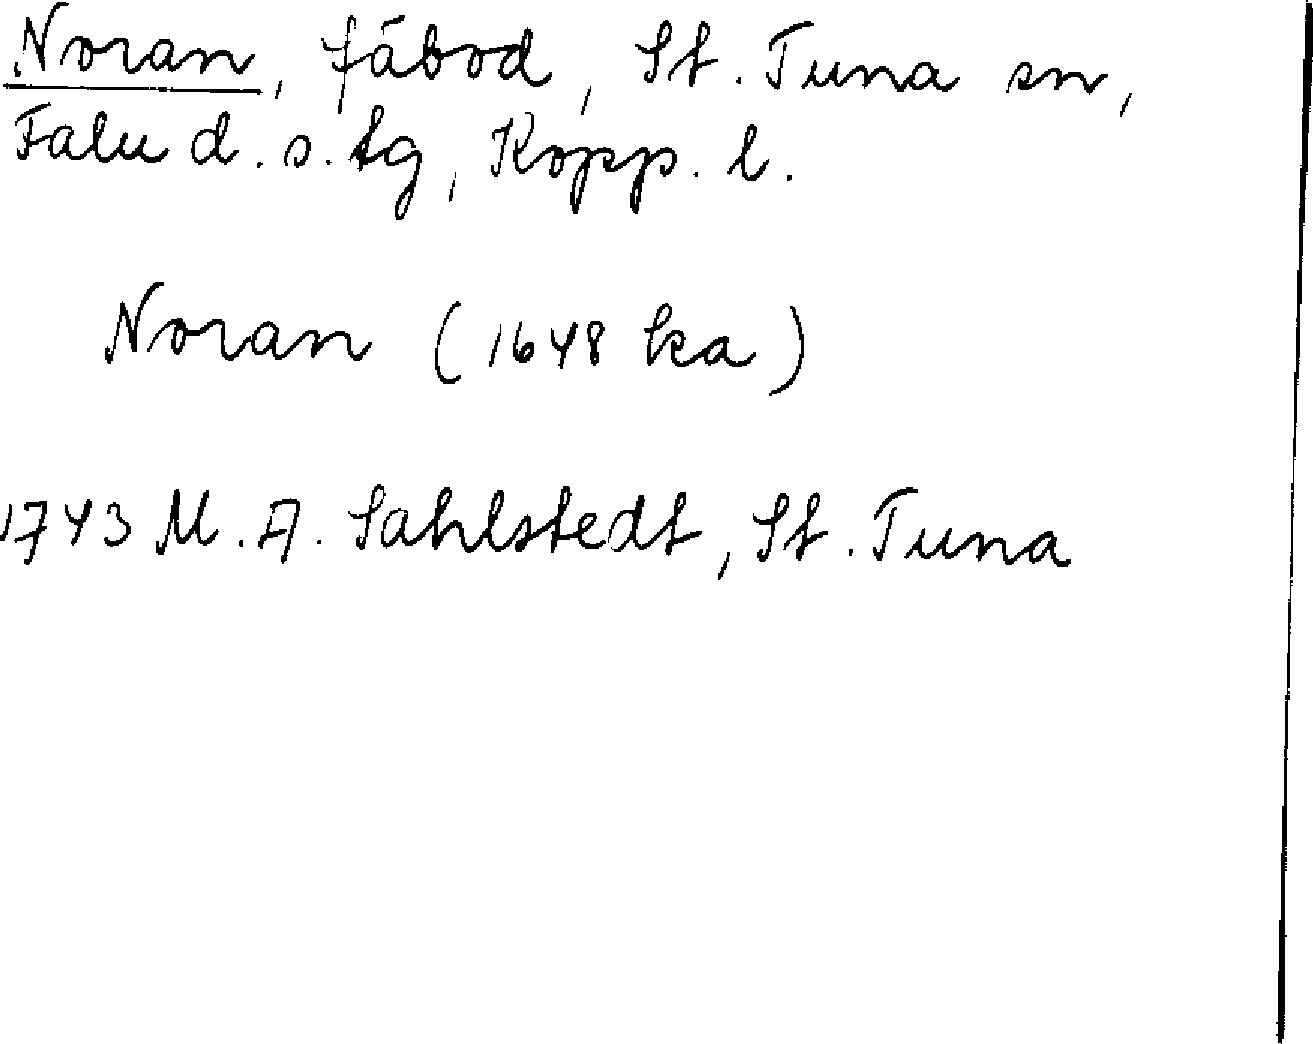 Noran, fäbod, St. Tuna sn,
Falu d. s. tg, Kopp. l.
Noran (1648 ka)
1743 M. A. Sahlstedt, St. Tuna